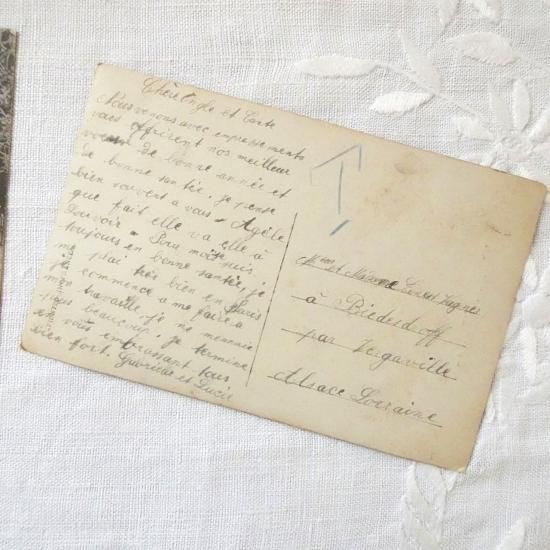 Chère Ongle et Tante
Nous venons avec empressements
vous offrirent nos meilleur
voeux De bonne année et
De bonne santée, je pense
bien souvent a vous - Agèle
que fait elle va elle à
Louvoir - Sinu moi je suis
toujours en bonne santée, je
me plai trés bien en Paris
je commence a me faire a
mon travaille je ne mennuie
pas beaucoup je termine
en vous embrassant tous
bien fort. Gabrielle et Lucie
Mme et Madame Louis
à Biedesdroff
par Vergaville
Alsace Lorraine